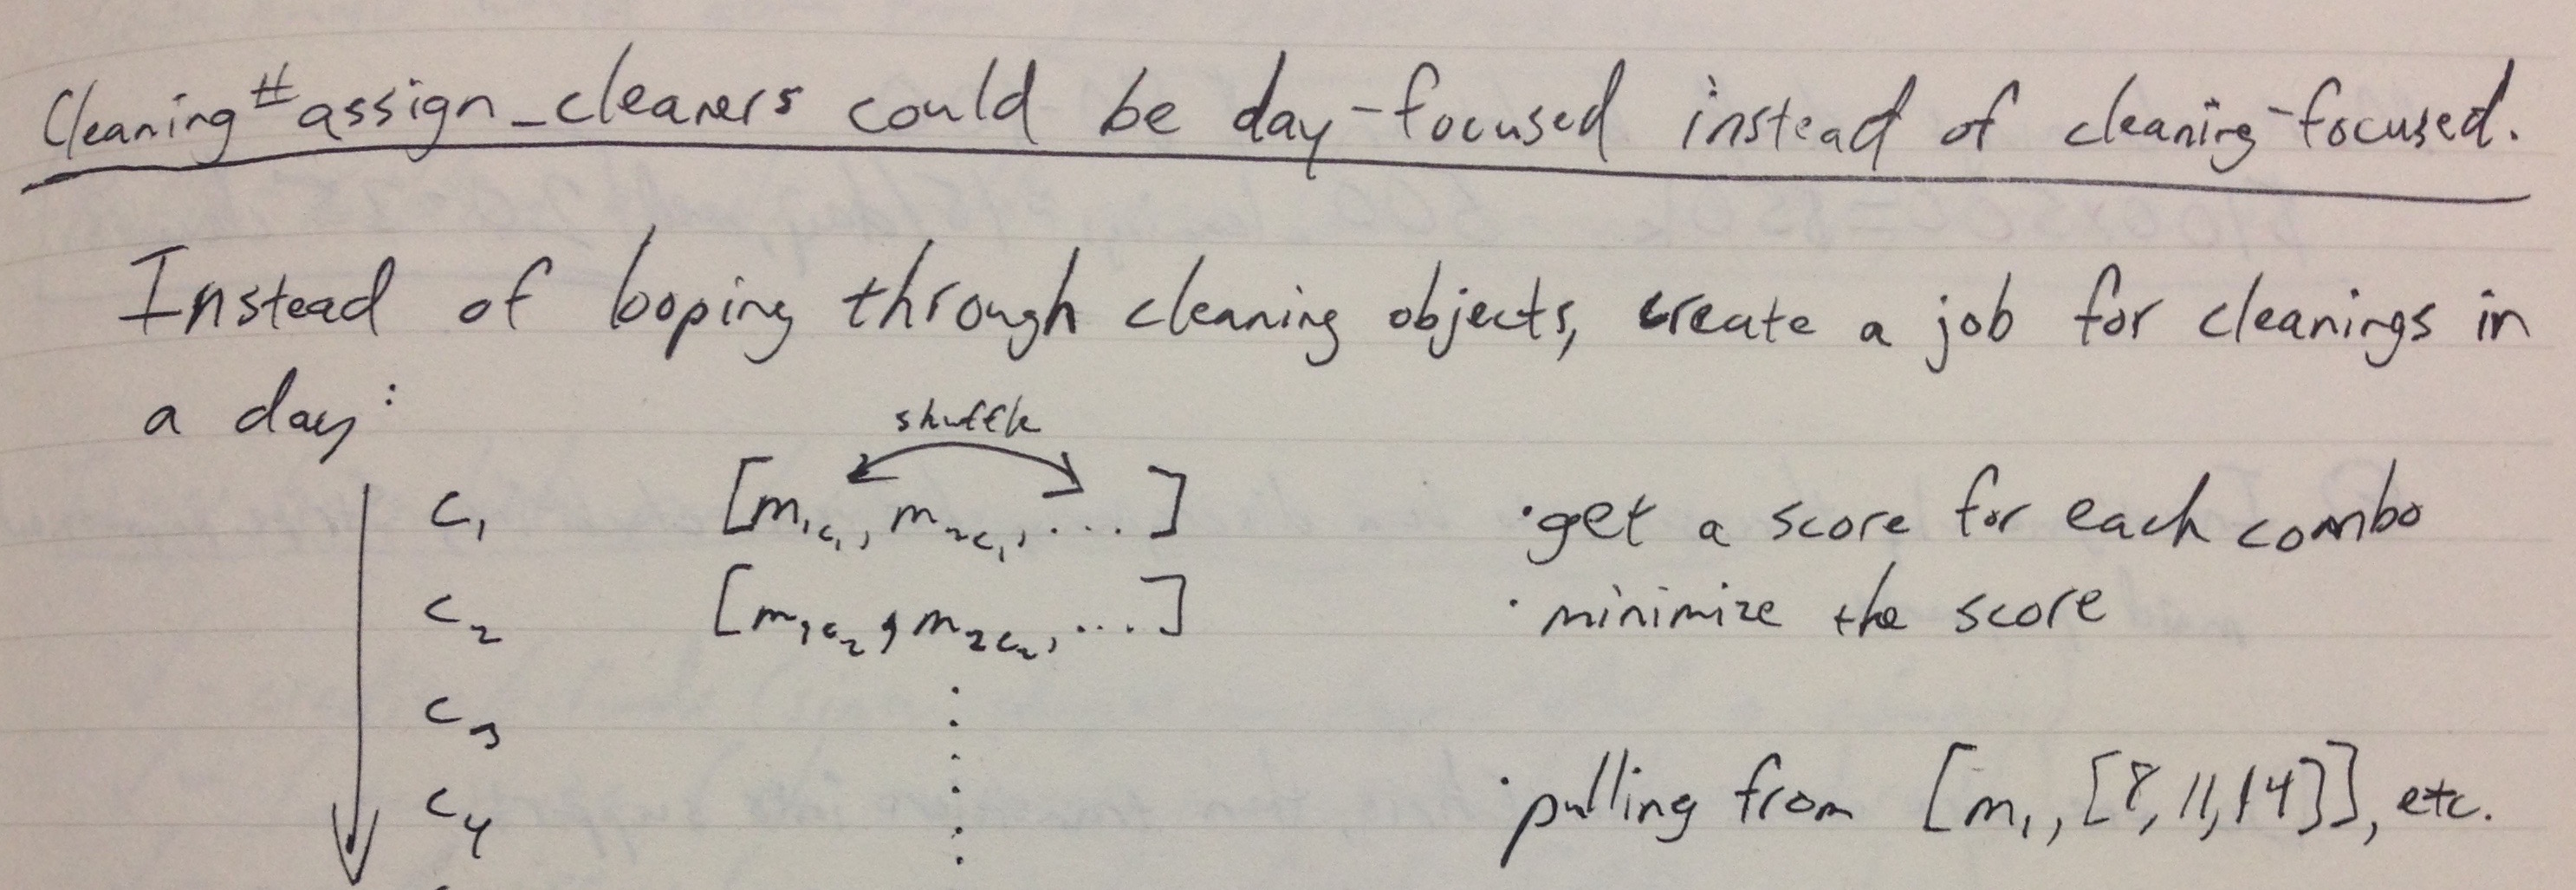 Cleaning#assign_cleaners could be day-focused instead of cleaning-focused.
Instead of looping through cleaning objects, create a job for cleanings in
a day:
shuffle
c₁ [m₁c₁, m₂c₁, ....] · get a score for each combo
c₂ [m₁c₂, m₂c₂, ...] · minimize the score
c₃
c₄ · pulling from [m₁, [8, 11, 14]], etc.